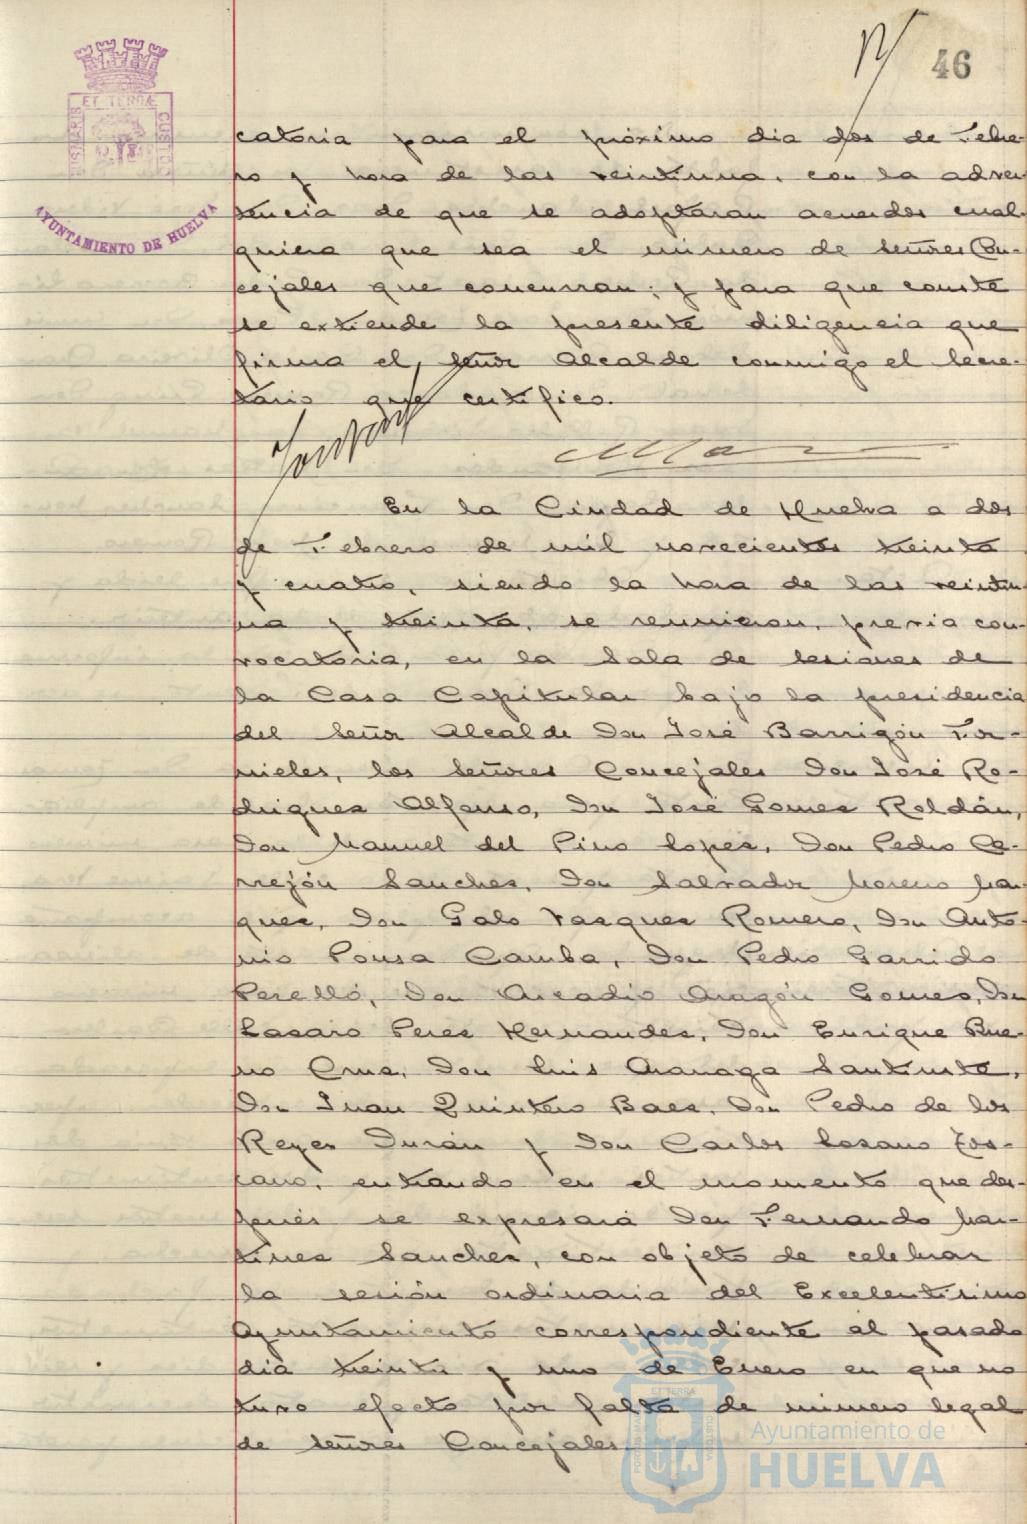 46
ET TERRÆ
CUSTO
AYUNTAMIENTO DE HUELVA
catoria para el próximo dia dos de Febre-
ro y hora de las veintiuna, con la adver-
tencia de que se adoptaran acuerdos cual-
quiera que sea el número de señores Con-
cejales que concurran; y para que conste
se extiende la presente diligencia que
firma el señor Alcalde conmigo el Secre-
tario que certifico.
En la Ciudad de Huelva a dos
de Febrero de mil novecientos treinta
y cuatro, siendo la hora de las veintiu-
na y treinta, se reunieron, previa con-
vocatoria, en la Sala de sesiones de
la Casa Capitular bajo la presidencia
del Señor Alcalde Don José Barrigón For-
nieles, los Señores Concejales Don José Ro-
driguez Alfonso, Don José Gomez Roldán,
Don Manuel del Pino Lopez, Don Pedro Ce-
rrejón Sanchez, Don Salvador Moreno Mar-
quez, Don Galo Vazquez Romero, Don Anto-
nio Pousa Camba, Don Pedro Garrido
Perelló, Don Arcadio Aragón Gomez, Don
Lazaro Perez Hernandez, Don Enrique Bue-
no Cruz, Don Luis Aranaga Santiuste,
Don Juan Quintero Baez, Don Pedro de los
Reyes Durán y Don Carlos Lozano Tos-
cano, entrando en el momento que des-
pués se expresará Don Fernando Mar-
tinez Sanchez, con objeto de celebrar
la sesión ordinaria del Excelentísimo
Ayuntamiento correspondiente al pasado
dia treinta y uno de Enero en que no
tuvo efecto por falta de número legal
de señores Concejales.
Ayuntamiento de
HUELVA